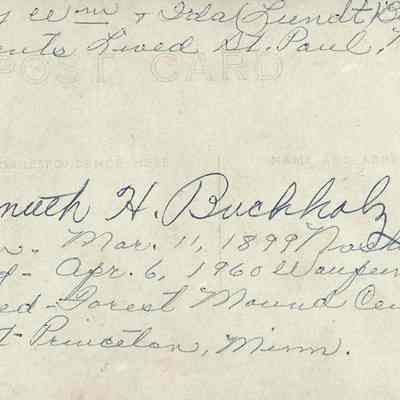 em & Ida (Lundt) B
ents Lived St. Paul,
POST CARD
RRESPONDENCE HERE
NAME AND ADDRE
muth H. Buchholz
n. Mar. 11, 1899
d - Apr. 6, 1960 Waupun
ed - Forest Mound Cem
t - Princeton, Minn.